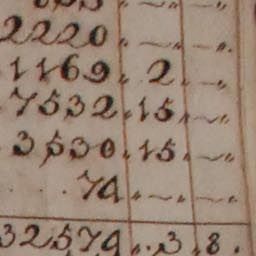 2220 „ — „ — „
1169 „ 2 „ — „
7532 „ 15 „ — „
3530 „ 15 „ — „
74 „ — „ — „
32579 „ 3 „ 8 .